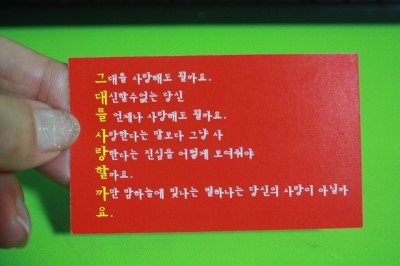 그대를 사랑해도 될까요.
대신할수없는 당신
를 언제나 사랑해도 될까요.
사랑한다는 말보다 그냥 사
랑한다는 진심을 어떻게 보여줘야
할까요.
까만 밤하늘에 빛나는 별하나는 당신의 사랑이 아닐까
요.